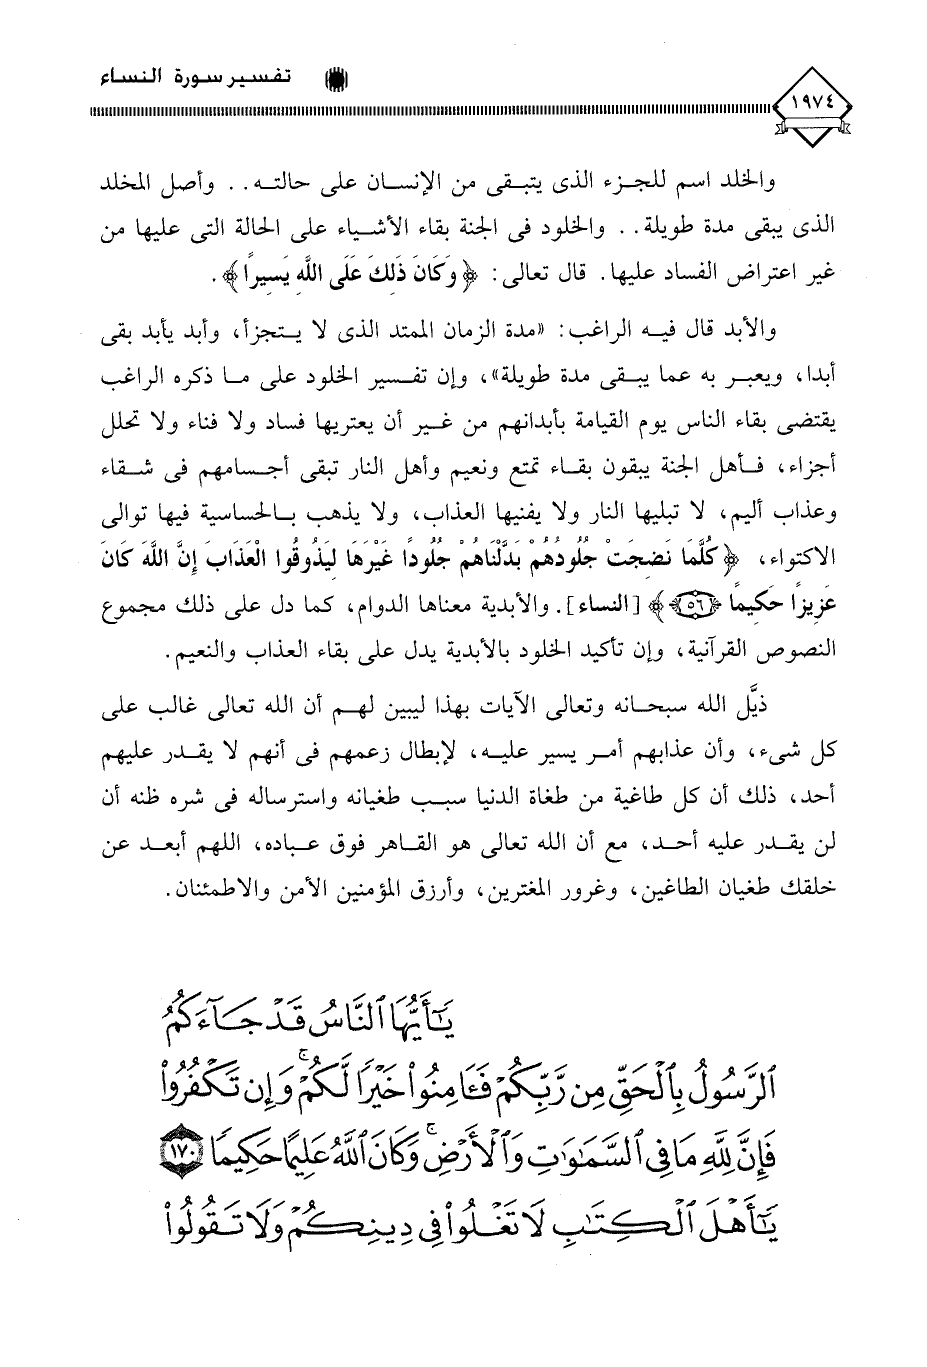 تفسير سورة النساء
١٩٧٤
والخلد اسم للجزء الذى يتبقى من الإنسان على حالته.. وأصل المخلد
الذى يبقى مدة طويلة.. والخلود فى الجنة بقاء الأشياء على الحالة التى عليها من
غير اعتراض الفساد عليها. قال تعالى: ﴿وَكَانَ ذَلِكَ عَلَى اللَّهِ يَسِيرًا﴾.
والأبد قال فيه الراغب: «مدة الزمان الممتد الذى لا يتجزأ، وأبد يأبد بقى
أبدا، ويعبر به عما يبقى مدة طويلة»، وإن تفسير الخلود على ما ذكره الراغب
يقتضى بقاء الناس يوم القيامة بأبدانهم من غير أن يعتريها فساد ولا فناء ولا تحلل
أجزاء، فأهل الجنة يبقون بقاء تمتع ونعيم وأهل النار تبقى أجسامهم فى شقاء
وعذاب أليم، لا تبليها النار ولا يفنيها العذاب، ولا يذهب بالحساسية فيها توالى
الاكتواء، ﴿كُلَّمَا نَضِجَتْ جُلُودُهُمْ بَدَّلْنَاهُمْ جُلُودًا غَيْرَهَا لِيَذُوقُوا الْعَذَابَ إِنَّ اللَّهَ كَانَ
عَزِيزًا حَكِيمًا ﴿٥٦﴾﴾ [النساء]. والأبدية معناها الدوام، كما دل على ذلك مجموع
النصوص القرآنية، وإن تأكيد الخلود بالأبدية يدل على بقاء العذاب والنعيم.
ذيَّل الله سبحانه وتعالى الآيات بهذا ليبين لهم أن الله تعالى غالب على
كل شىء، وأن عذابهم أمر يسير عليه، لإبطال زعمهم فى أنهم لا يقدر عليهم
أحد، ذلك أن كل طاغية من طغاة الدنيا سبب طغيانه واسترساله فى شره ظنه أن
لن يقدر عليه أحد، مع أن الله تعالى هو القاهر فوق عباده، اللهم أبعد عن
خلقك طغيان الطاغين، وغرور المغترين، وأرزق المؤمنين الأمن والاطمئنان.
يَٰٓأَيُّهَا ٱلنَّاسُ قَدْ جَآءَكُمُ
ٱلرَّسُولُ بِٱلْحَقِّ مِن رَّبِّكُمْ فَـَٔامِنُوا۟ خَيْرًا لَّكُمْ ۚ وَإِن تَكْفُرُوا۟
فَإِنَّ لِلَّهِ مَا فِى ٱلسَّمَٰوَٰتِ وَٱلْأَرْضِ ۚ وَكَانَ ٱللَّهُ عَلِيمًا حَكِيمًا ١٧٠
يَٰٓأَهْلَ ٱلْكِتَٰبِ لَا تَغْلُوا۟ فِى دِينِكُمْ وَلَا تَقُولُوا۟